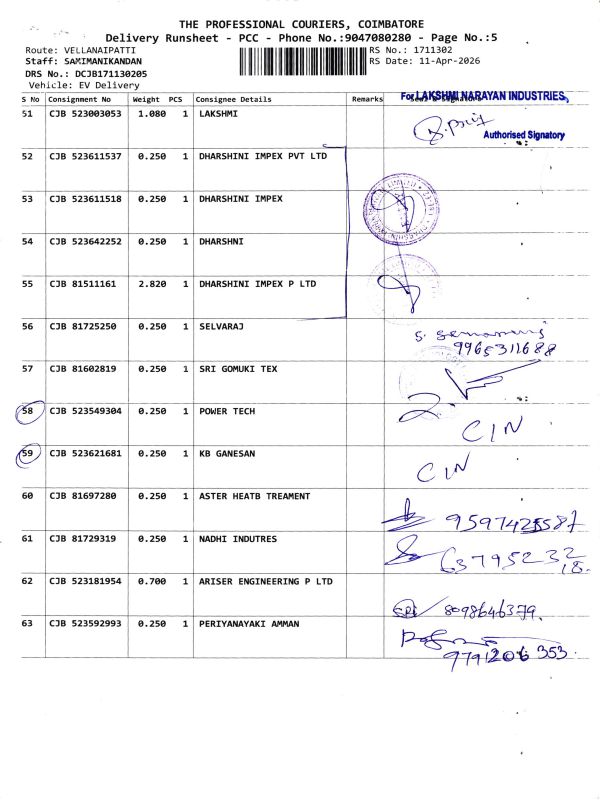 THE PROFESSIONAL COURIERS, COIMBATORE
Delivery Runsheet - PCC - Phone No.:9047080280 - Page No.:5
Route: VELLANAIPATTI
RS No.: 1711302
Staff: SAMIMANIKANDAN
RS Date: 11-Apr-2026
DRS No.: DCJB171130205
Vehicle: EV Delivery
S No Consignment No Weight PCS Consignee Details Remarks
For LAKSHMI NARAYAN INDUSTRIES,
51 CJB 523003053 1.080 1 LAKSHMI
Authorised Signatory
52 CJB 523611537 0.250 1 DHARSHINI IMPEX PVT LTD
53 CJB 523611518 0.250 1 DHARSHINI IMPEX
54 CJB 523642252 0.250 1 DHARSHNI
55 CJB 81511161 2.820 1 DHARSHINI IMPEX P LTD
56 CJB 81725250 0.250 1 SELVARAJ
9965311688
57 CJB 81602819 0.250 1 SRI GOMUKI TEX
58 CJB 523549304 0.250 1 POWER TECH
CIN
59 CJB 523621681 0.250 1 KB GANESAN
CIN
60 CJB 81697280 0.250 1 ASTER HEATB TREAMENT
61 CJB 81729319 0.250 1 NADHI INDUTRES
62 CJB 523181954 0.700 1 ARISER ENGINEERING P LTD
8098646379.
63 CJB 523592993 0.250 1 PERIYANAYAKI AMMAN
9791206353.